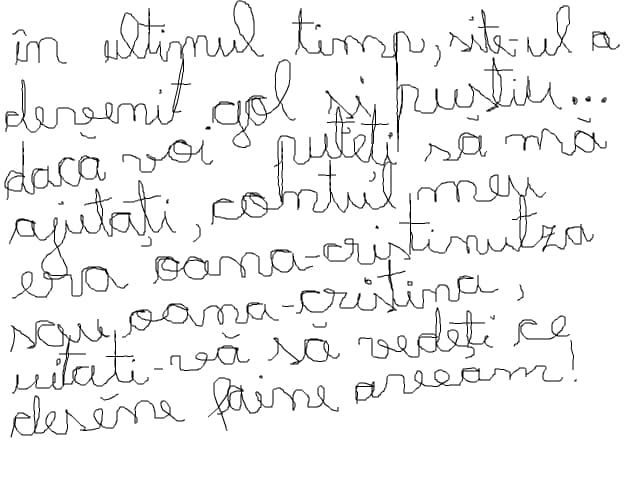 în ultimul timp, site-ul a
devenit gol si pustiu...
dacă voi puteți să mă
ajutați, contul meu
era oana-cristinutza
sau oana-cristina,
uitați-vă să vedeți ce
desene faine aveam!